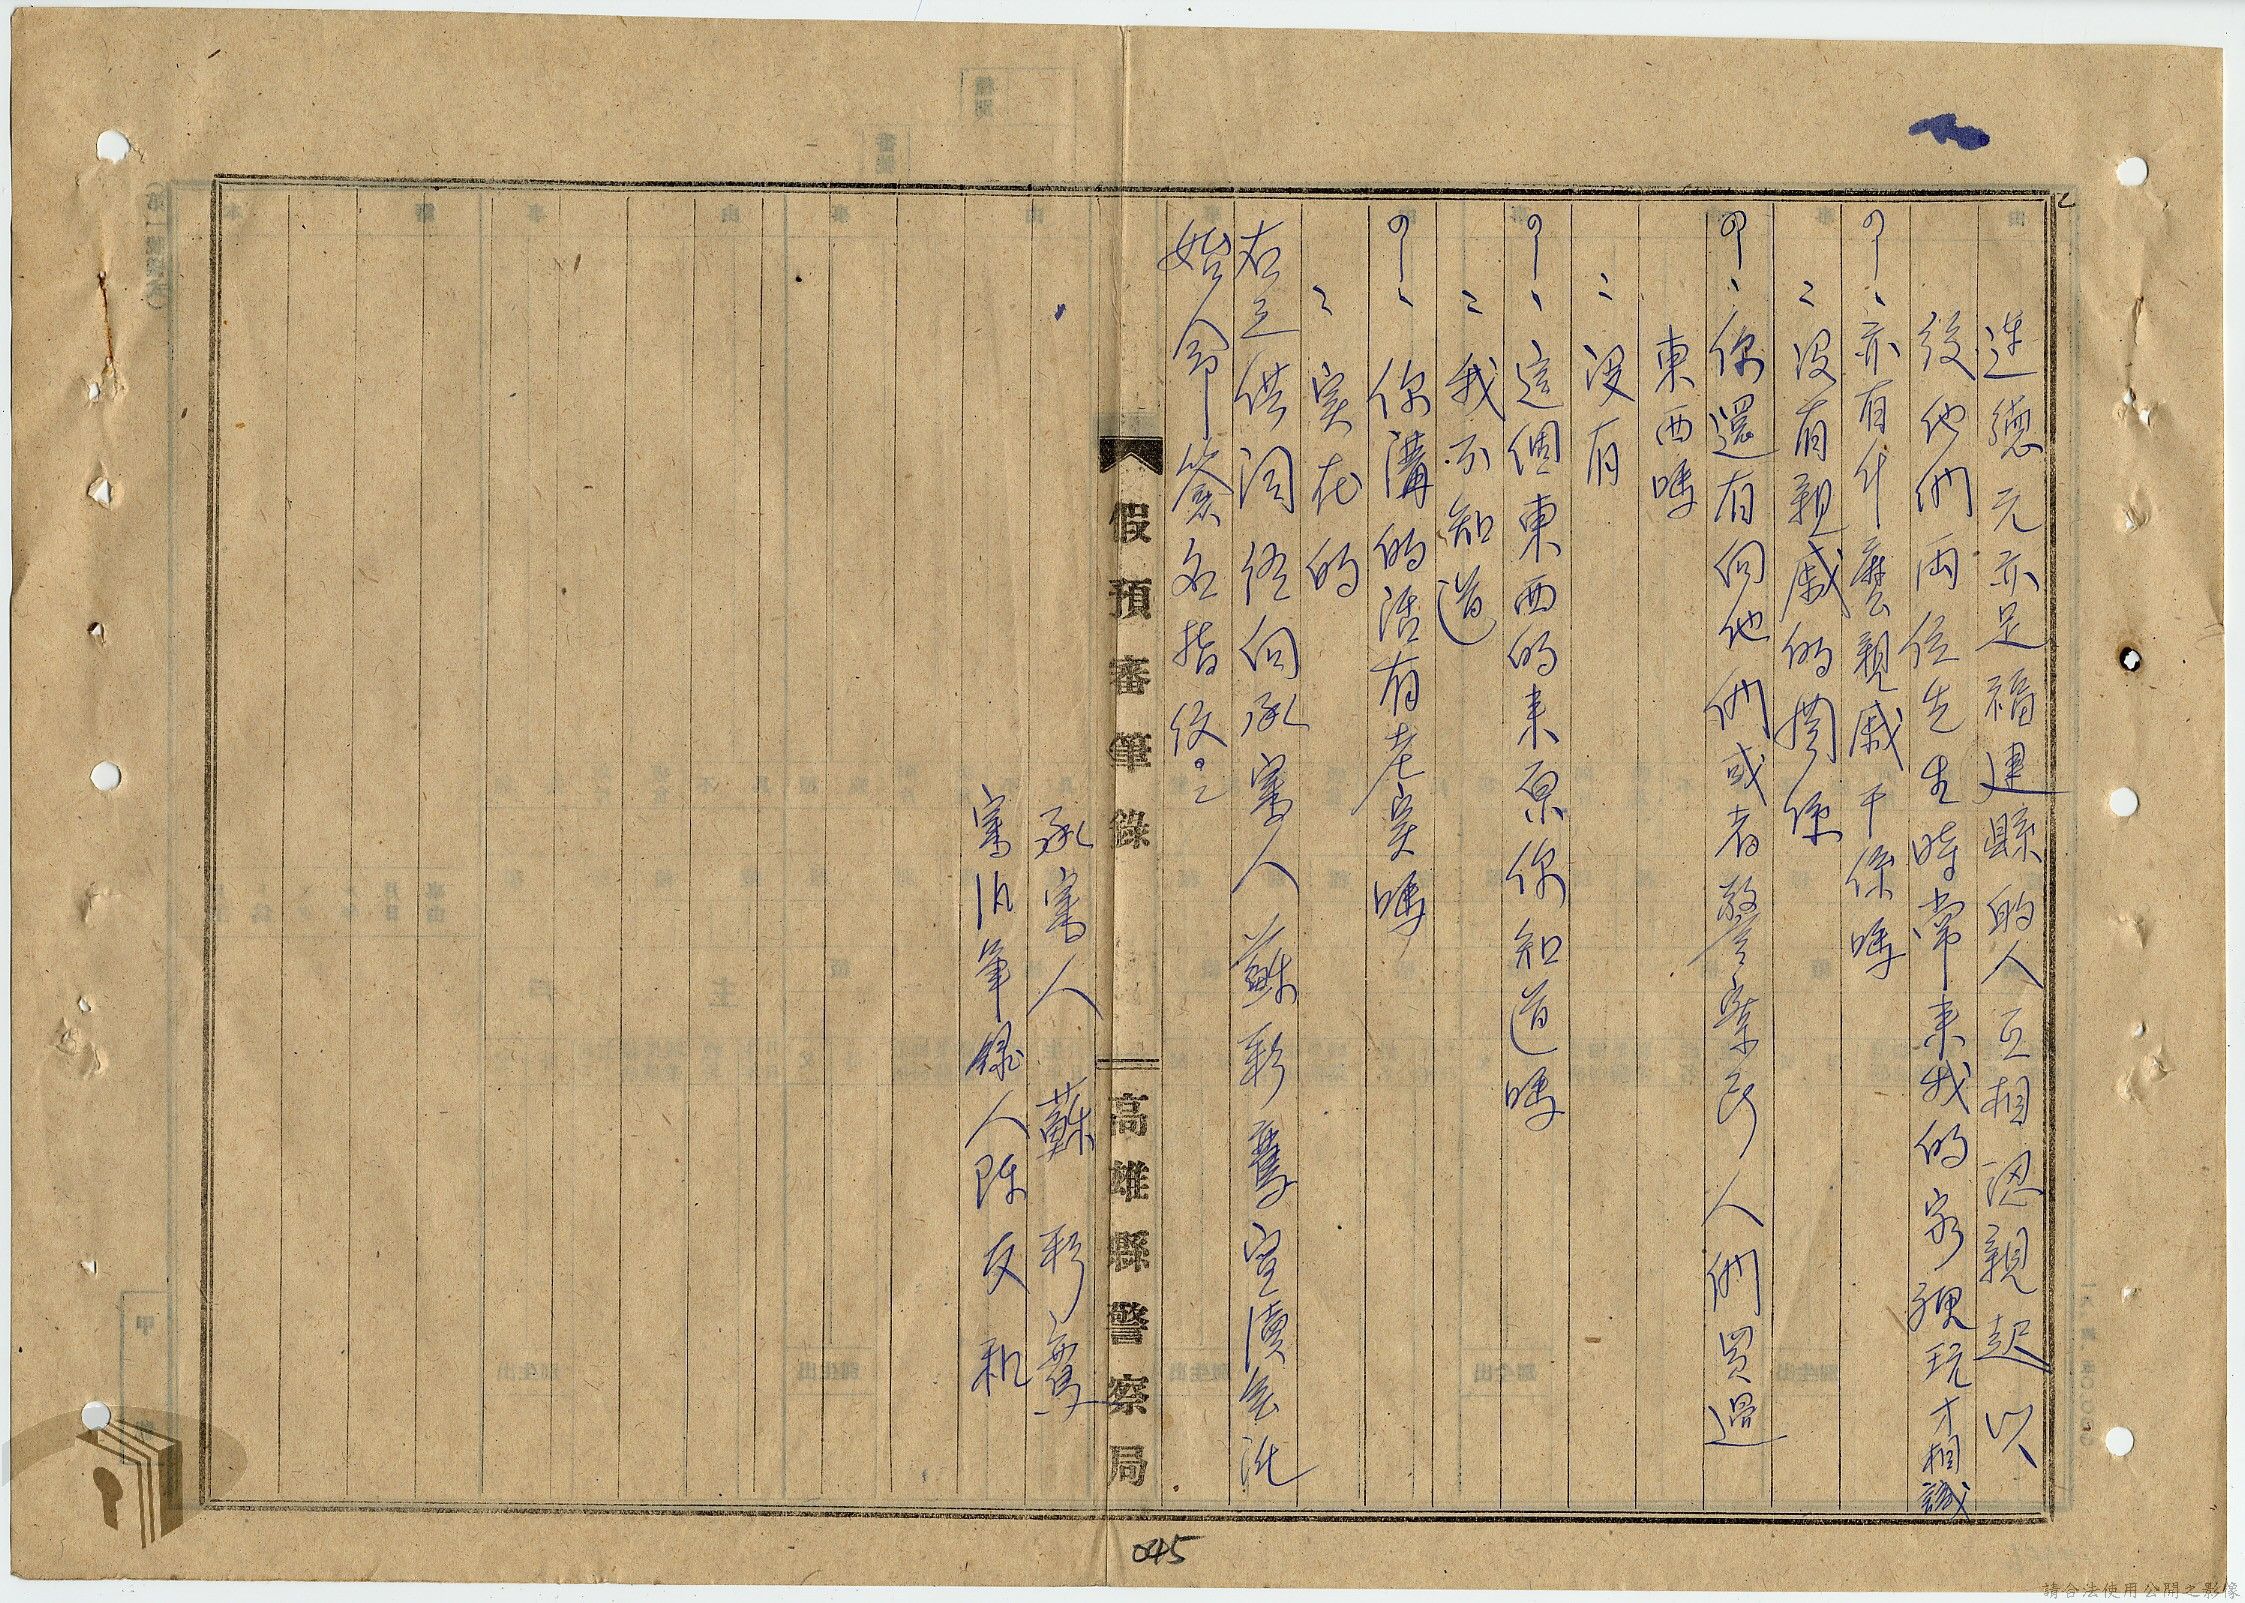 連德元亦是福建縣的人互相認親起以
後他們兩位先生時常來我的家裡玩才相識
叩、亦有什麼親戚干係嗎
〻沒有親戚的關係
叩、你還有向他們或者警察局人們買過
東西嗎
〻沒有
叩、這個東西的来原你知道嗎
〻我不知道
叩、你講的話有老實嗎
〻實在的
右立供詞經向承審人蘇彩 宣讀無訛
始令印簽名指紋。
假預審筆錄
高雄縣警察局
承審人 蘇彩
筆錄人陳友
045
請合法使用公開之影像